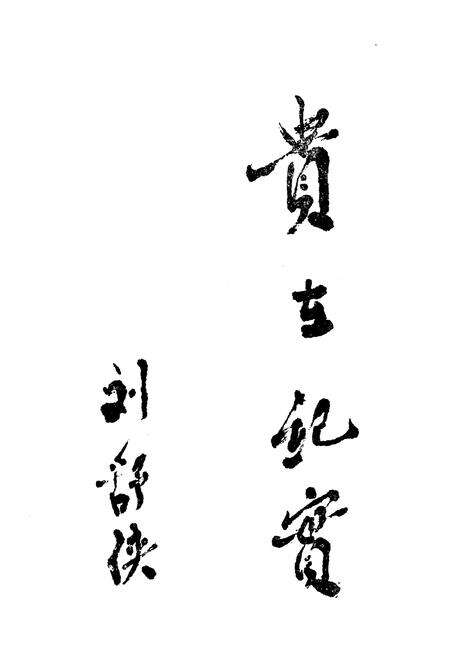 貴在紀實
刘舒侠